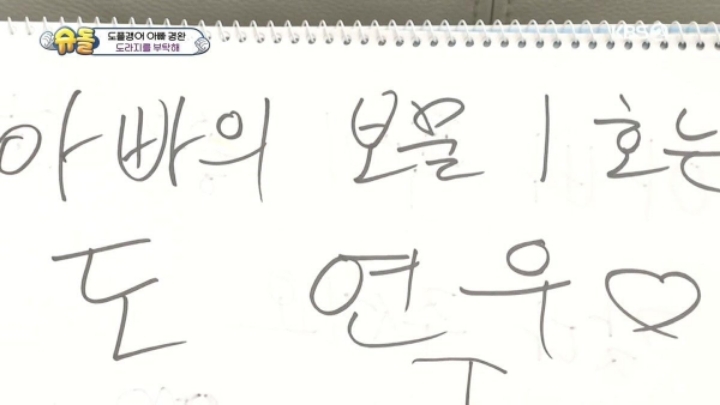 슈돌
도플갱어 아빠 경완
도라지를 부탁해
KBS2
아빠의 보물 1호는
도 연우♡